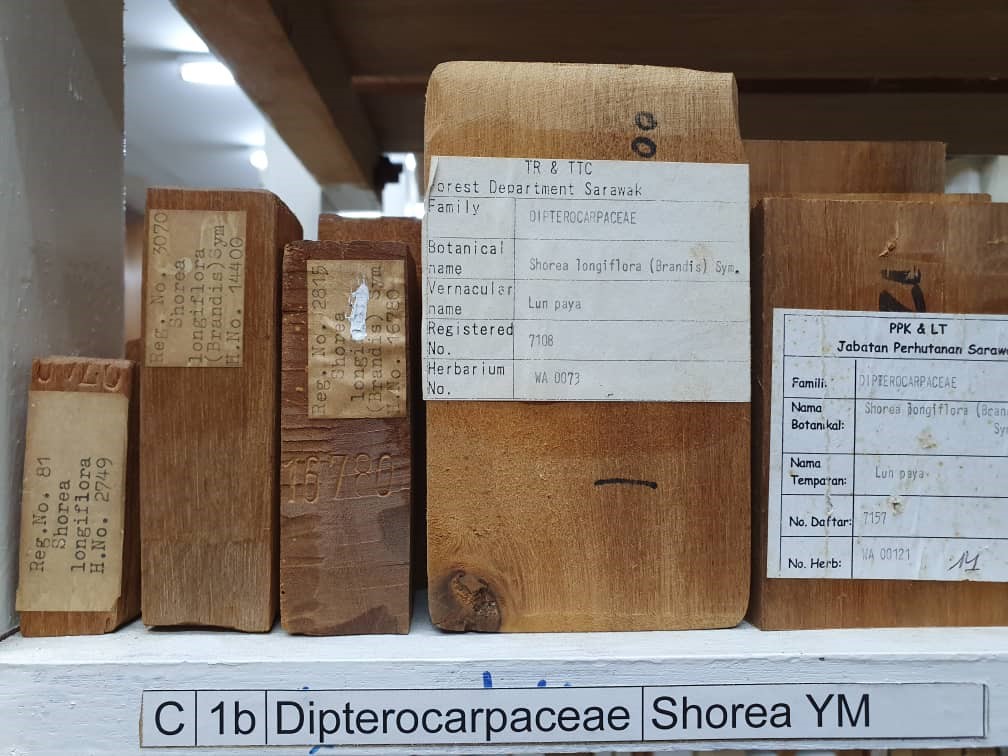 Reg.No. 81
Shorea
longiflora
H.No. 2749
Reg. No. 3070
Shorea
longiflora
(Brandis)Sym
H.No. 14400
Reg.No. 2815
Shorea
(Brandis) Sym
H.No. 16780
16780
00
TR & TTC
orest Department Sarawak
Family
DIPTEROCARPACEAE
Botanical name
Shorea longiflora (Brandis) Sym.
Vernacular name
Lun paya
Registered No.
7108
Herbarium No.
WA 0073
PPK & LT
Jabatan Perhutanan Sarawa
Famili:
DIPTEROCARPACEAE
Nama Botanikal:
Shorea longiflora (Bran
Sy
Nama Tempatan:
Lun paya
No. Daftar:
7157
No. Herb:
WA 00121
C 1b Dipterocarpaceae Shorea YM